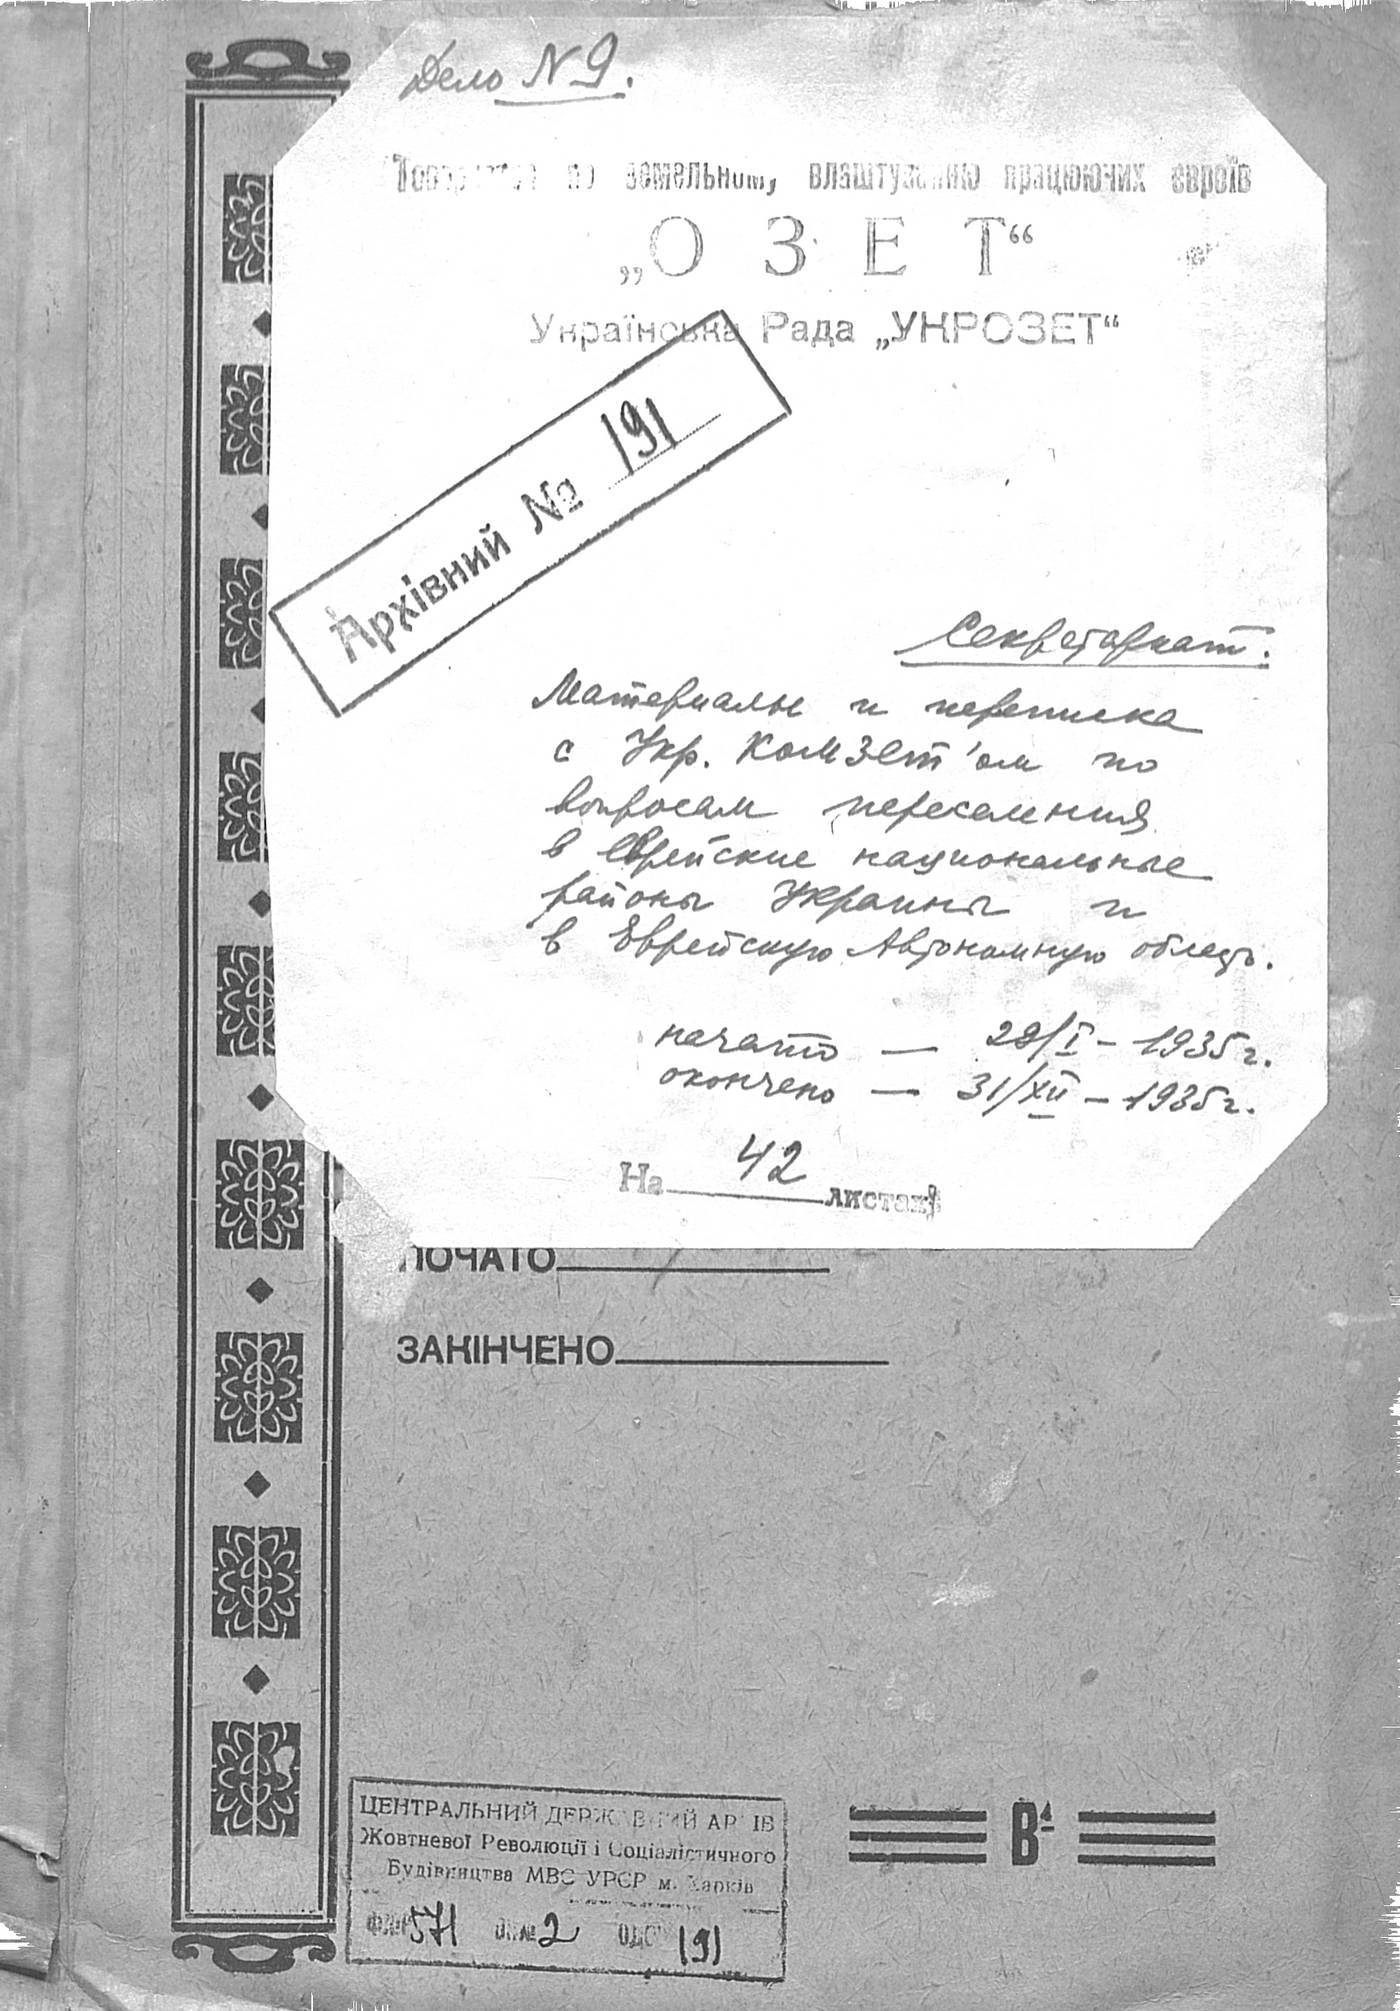 Дело N 9.
Товариство по земельному влаштуванню працюючих євреїв
„ОЗЕТ“
Українська Рада „УКРОЗЕТ“
Архівний № 191
Секретариат.
Материалы и переписка
с Укр. Комзет'ом по
вопросам переселения
в еврейские национальные
районы Украины и
в Еврейскую Автономную область.
начато — 29/I – 1935 г.
окончено — 31/XII – 1935 г.
На 42 листах
ПОЧАТО
ЗАКІНЧЕНО
ЦЕНТРАЛЬНИЙ ДЕРЖАВНИЙ АРХІВ
Жовтневої Революції і Соціалістичного
Будівництва МВС УРСР м. Харків
ФОНД 571 ОПИС 2 ОД. 191
В⁴